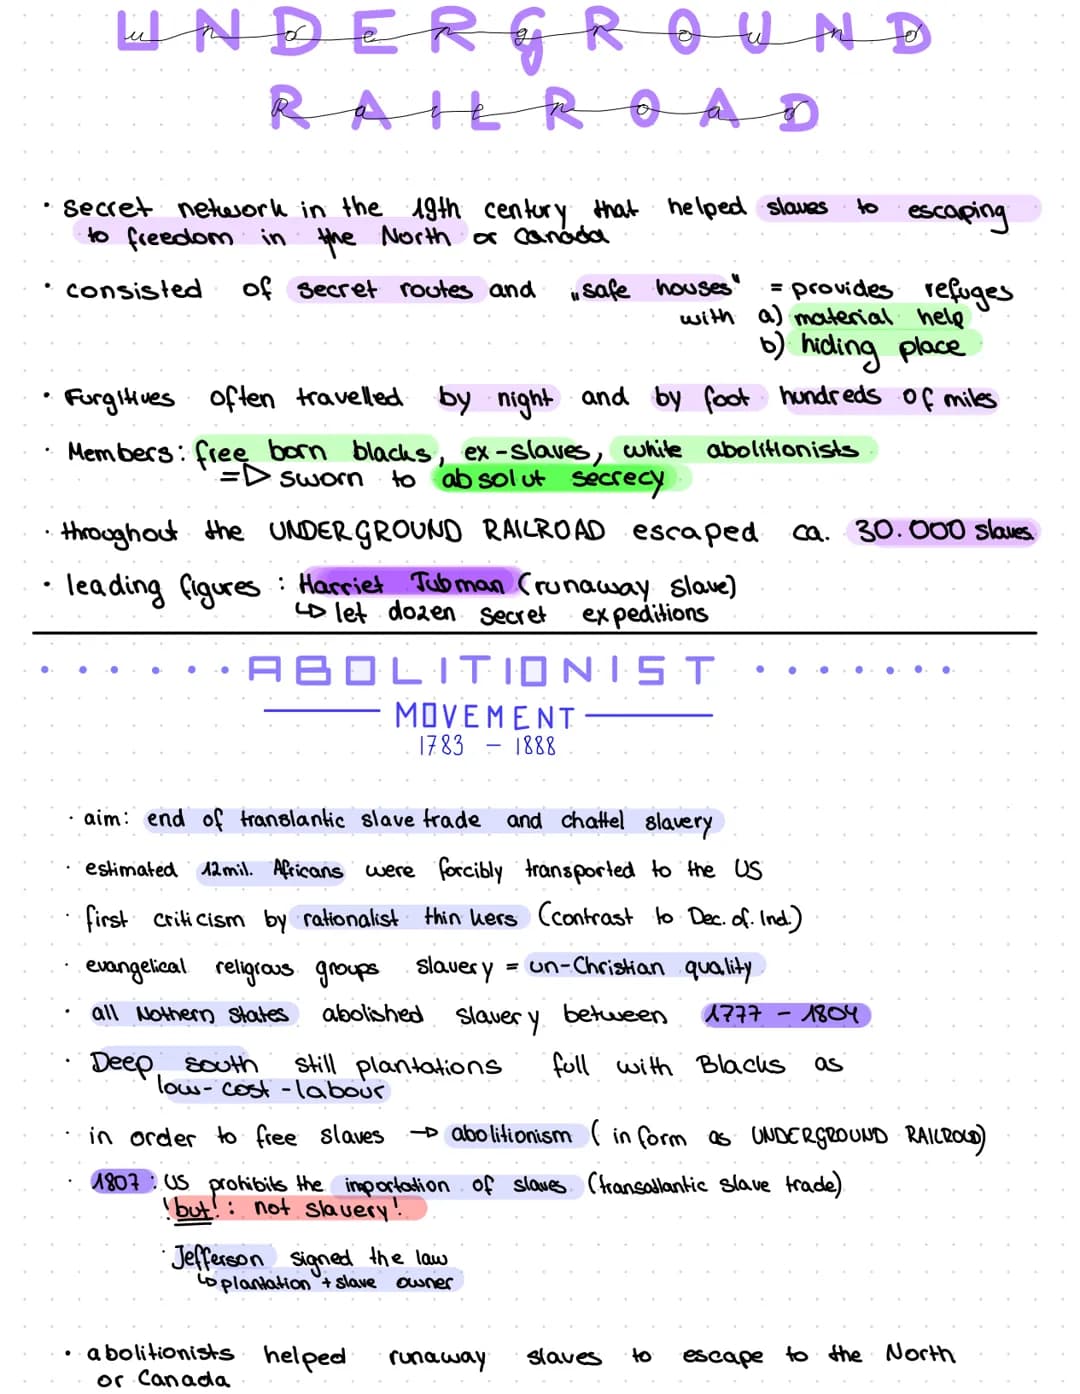 UNDERGROUND
underground
RAILROAD
Railroad
· secret network in the 19th century that helped slaves to escaping
to freedom in the North or Canada
· consisted of secret routes and „safe houses" = provides refuges
with a) material help
b) hiding place
· Furgitives often travelled by night and by foot hundreds of miles
· Members: free born blacks, ex-slaves, white abolitionists
=▷ sworn to absolut secrecy
· throughout the UNDERGROUND RAILROAD escaped ca. 30.000 slaves
· leading figures : Harriet Tubman (runaway slave)
↳ let dozen secret expeditions
ABOLITIONIST
MOVEMENT
1783 – 1888
· aim: end of translantic slave trade and chattel slavery
· estimated 12mil. Africans were forcibly transported to the US
· first criticism by rationalist thinkers (contrast to Dec. of. Ind.)
· evangelical religious groups slavery = un-Christian quality
· all Nothern States abolished slavery between 1777 – 1804
· Deep south still plantations full with Blacks as
low-cost-labour
· in order to free slaves → abolitionism (in form as UNDERGROUND RAILROAD)
· 1807 : US prohibits the importation of slaves (transatlantic slave trade)
!but!: not slavery!
· Jefferson signed the law
↳ plantation + slave owner
· abolitionists helped runaway slaves to escape to the North
or Canada